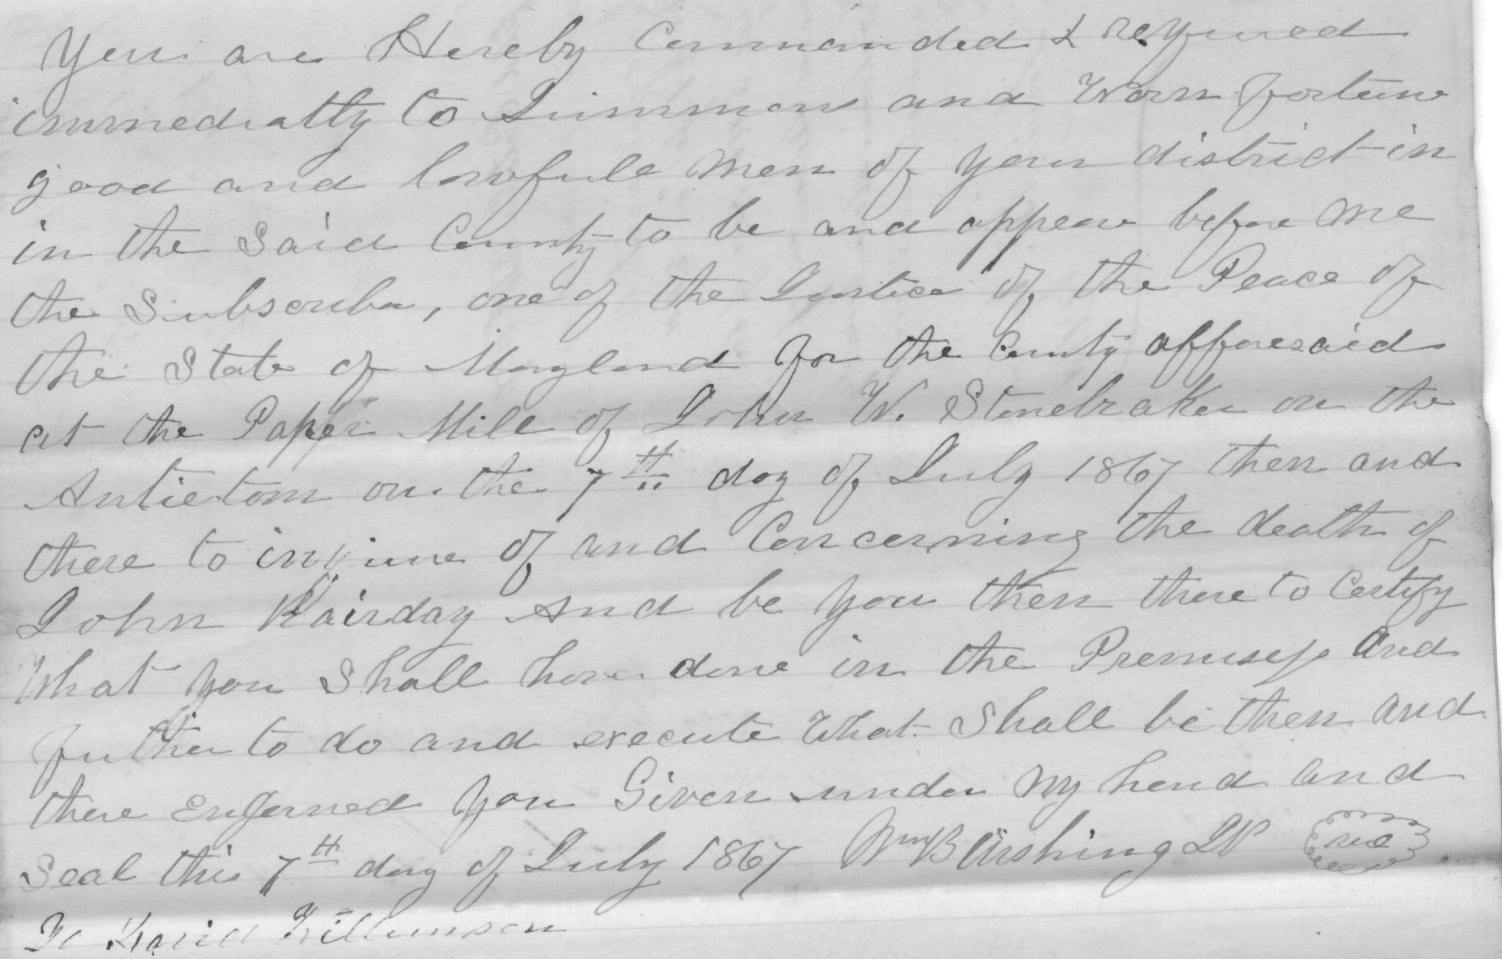 You are Hereby Commanded & requred
immediatly to Summon and Warn fortune
good and lawfule men of your district in
in the Said County to be and appear before me
the Subscriber, one of the Justice of the Peace of
the State of Maryland for the County afforesaid
at the Paper Mill of John W. Stonebraker on the
Antietam on the 7th day of July 1867 then and
there to inquire of and Concerning the death of
John Rairday And be you then there to Certify
What you Shall have done in the Premises And
futher to do and execute What Shall be then and
there Enjorned you Given under my hand and
Seal this 7th day of July 1867 Wm B JP
To David